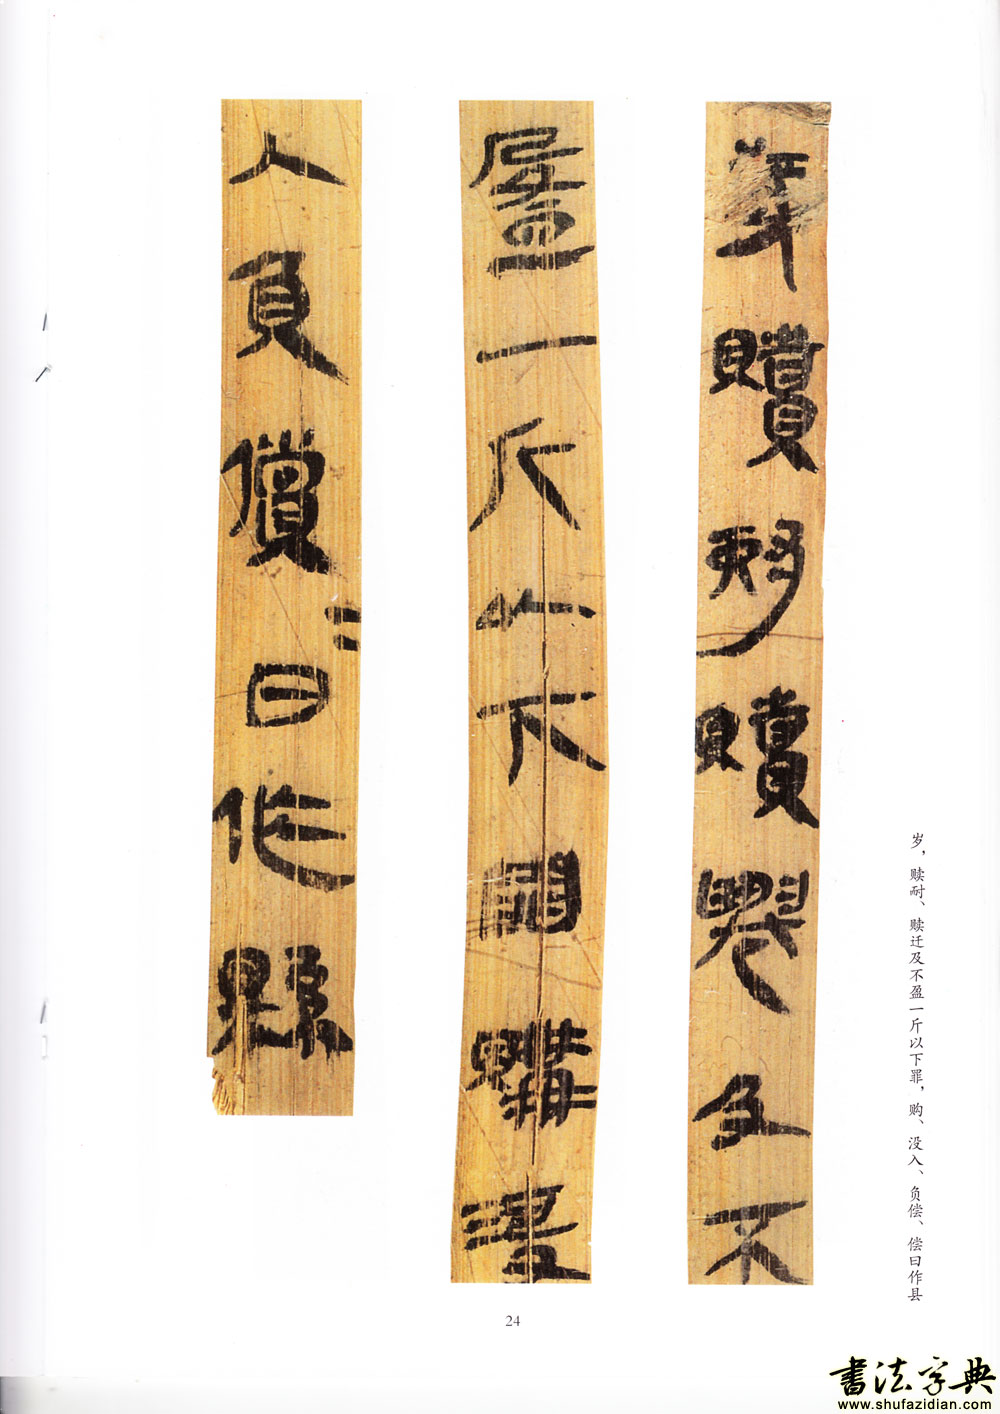 歲贖耐贖䙴及不
盈一斤以下罪購没
入負償=日作縣
岁，赎耐、赎迁及不盈一斤以下罪，购、没入、负偿、偿日作县
24
書法字典
www.shufazidian.com